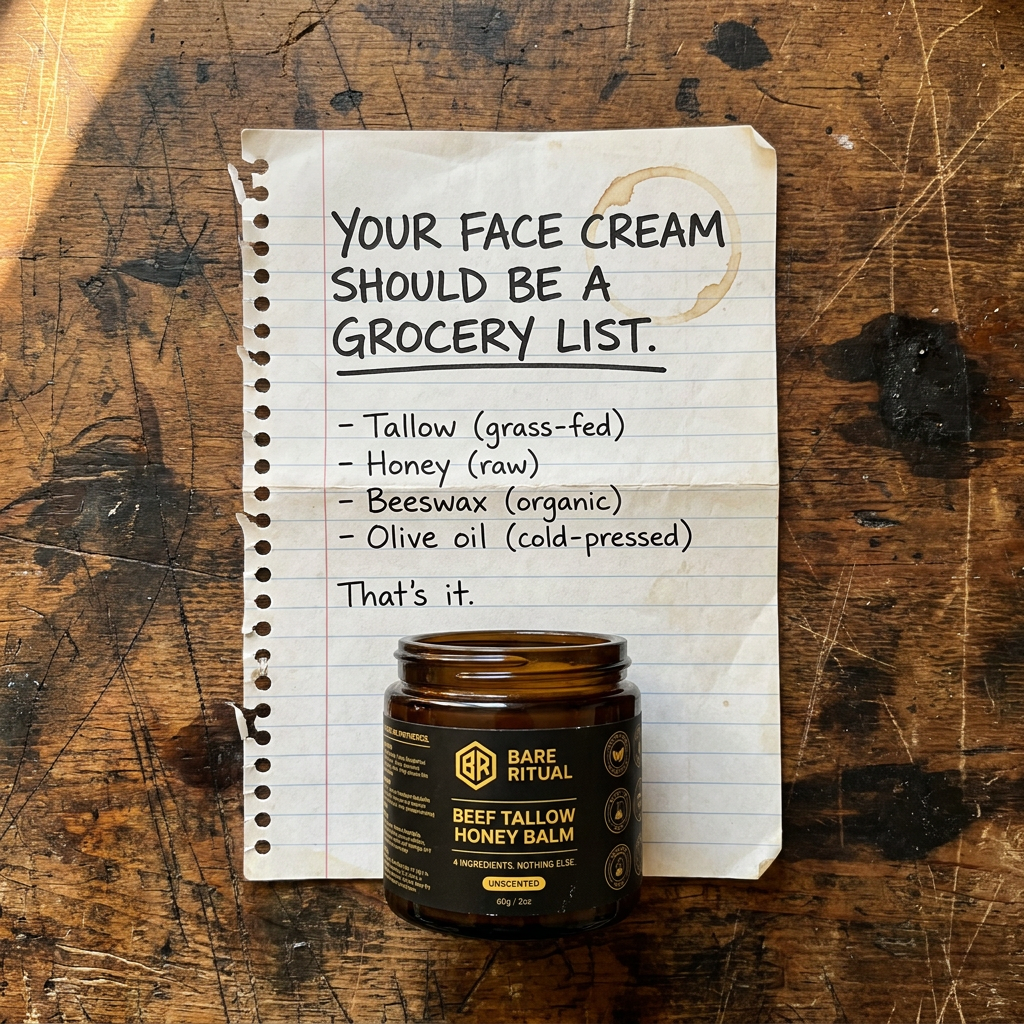 YOUR FACE CREAM
SHOULD BE A
GROCERY LIST.
- Tallow (grass-fed)
- Honey (raw)
- Beeswax (organic)
- Olive oil (cold-pressed)
That's it.
BR
BARE
RITUAL
BEEF TALLOW
HONEY BALM
4 INGREDIENTS. NOTHING ELSE.
UNSCENTED
60g / 2oz